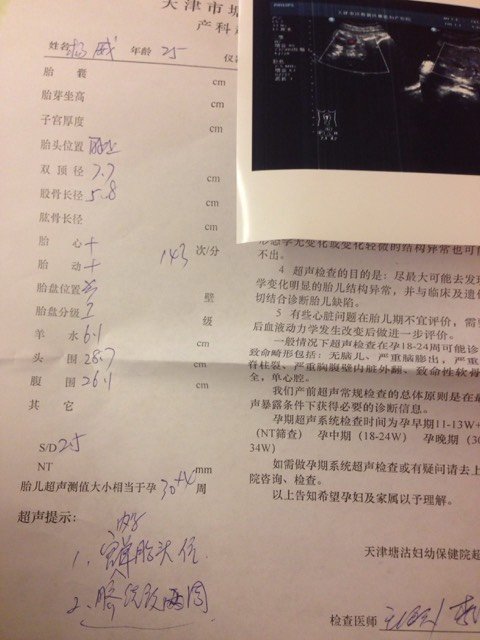 天津市塘
产科
姓名 杨威 年龄 25 仪
胎 囊 cm
胎芽坐高 cm
子宫厚度 cm
胎头位置
双 顶 径 7.7 cm
股骨长径 5.8 cm
肱骨长径 cm
胎 心 + 143 次/分
胎 动 +
胎盘位置 壁
胎盘分级 级
羊 水 6.1
头 围 28.7
腹 围 26.1
其 它
S/D 2.5
NT mm
胎儿超声测值大小相当于孕 30+ 周
超声提示：
1. 宫内 单胎头位
2. 脐绕颈两周
形态学无变化或变化轻微的结构异常也可
不出。
4 超声检查的目的是：尽最大可能去发现
学变化明显的胎儿结构异常，并与临床及遗
切结合诊断胎儿缺陷。
5 有些心脏问题在胎儿期不宜评价，需
后血液动力学发生改变后做进一步评价。
一般情况下超声检查在孕18-24周可能诊
致命畸形包括：无脑儿、严重脑膨出，严重
脊柱裂、严重胸腹壁内脏外翻、致命性软骨
全，单心腔。
我们产前超声常规检查的总体原则是在最
声暴露条件下获得必要的诊断信息。
孕期超声系统检查时间为孕早期11-13W+
(NT筛查) 孕中期 (18-24W) 孕晚期 (30
34W)
如需做孕期系统超声检查或有疑问请去上
院咨询、检查。
以上告知希望孕妇及家属以予理解。
天津塘沽妇幼保健院超
检查医师